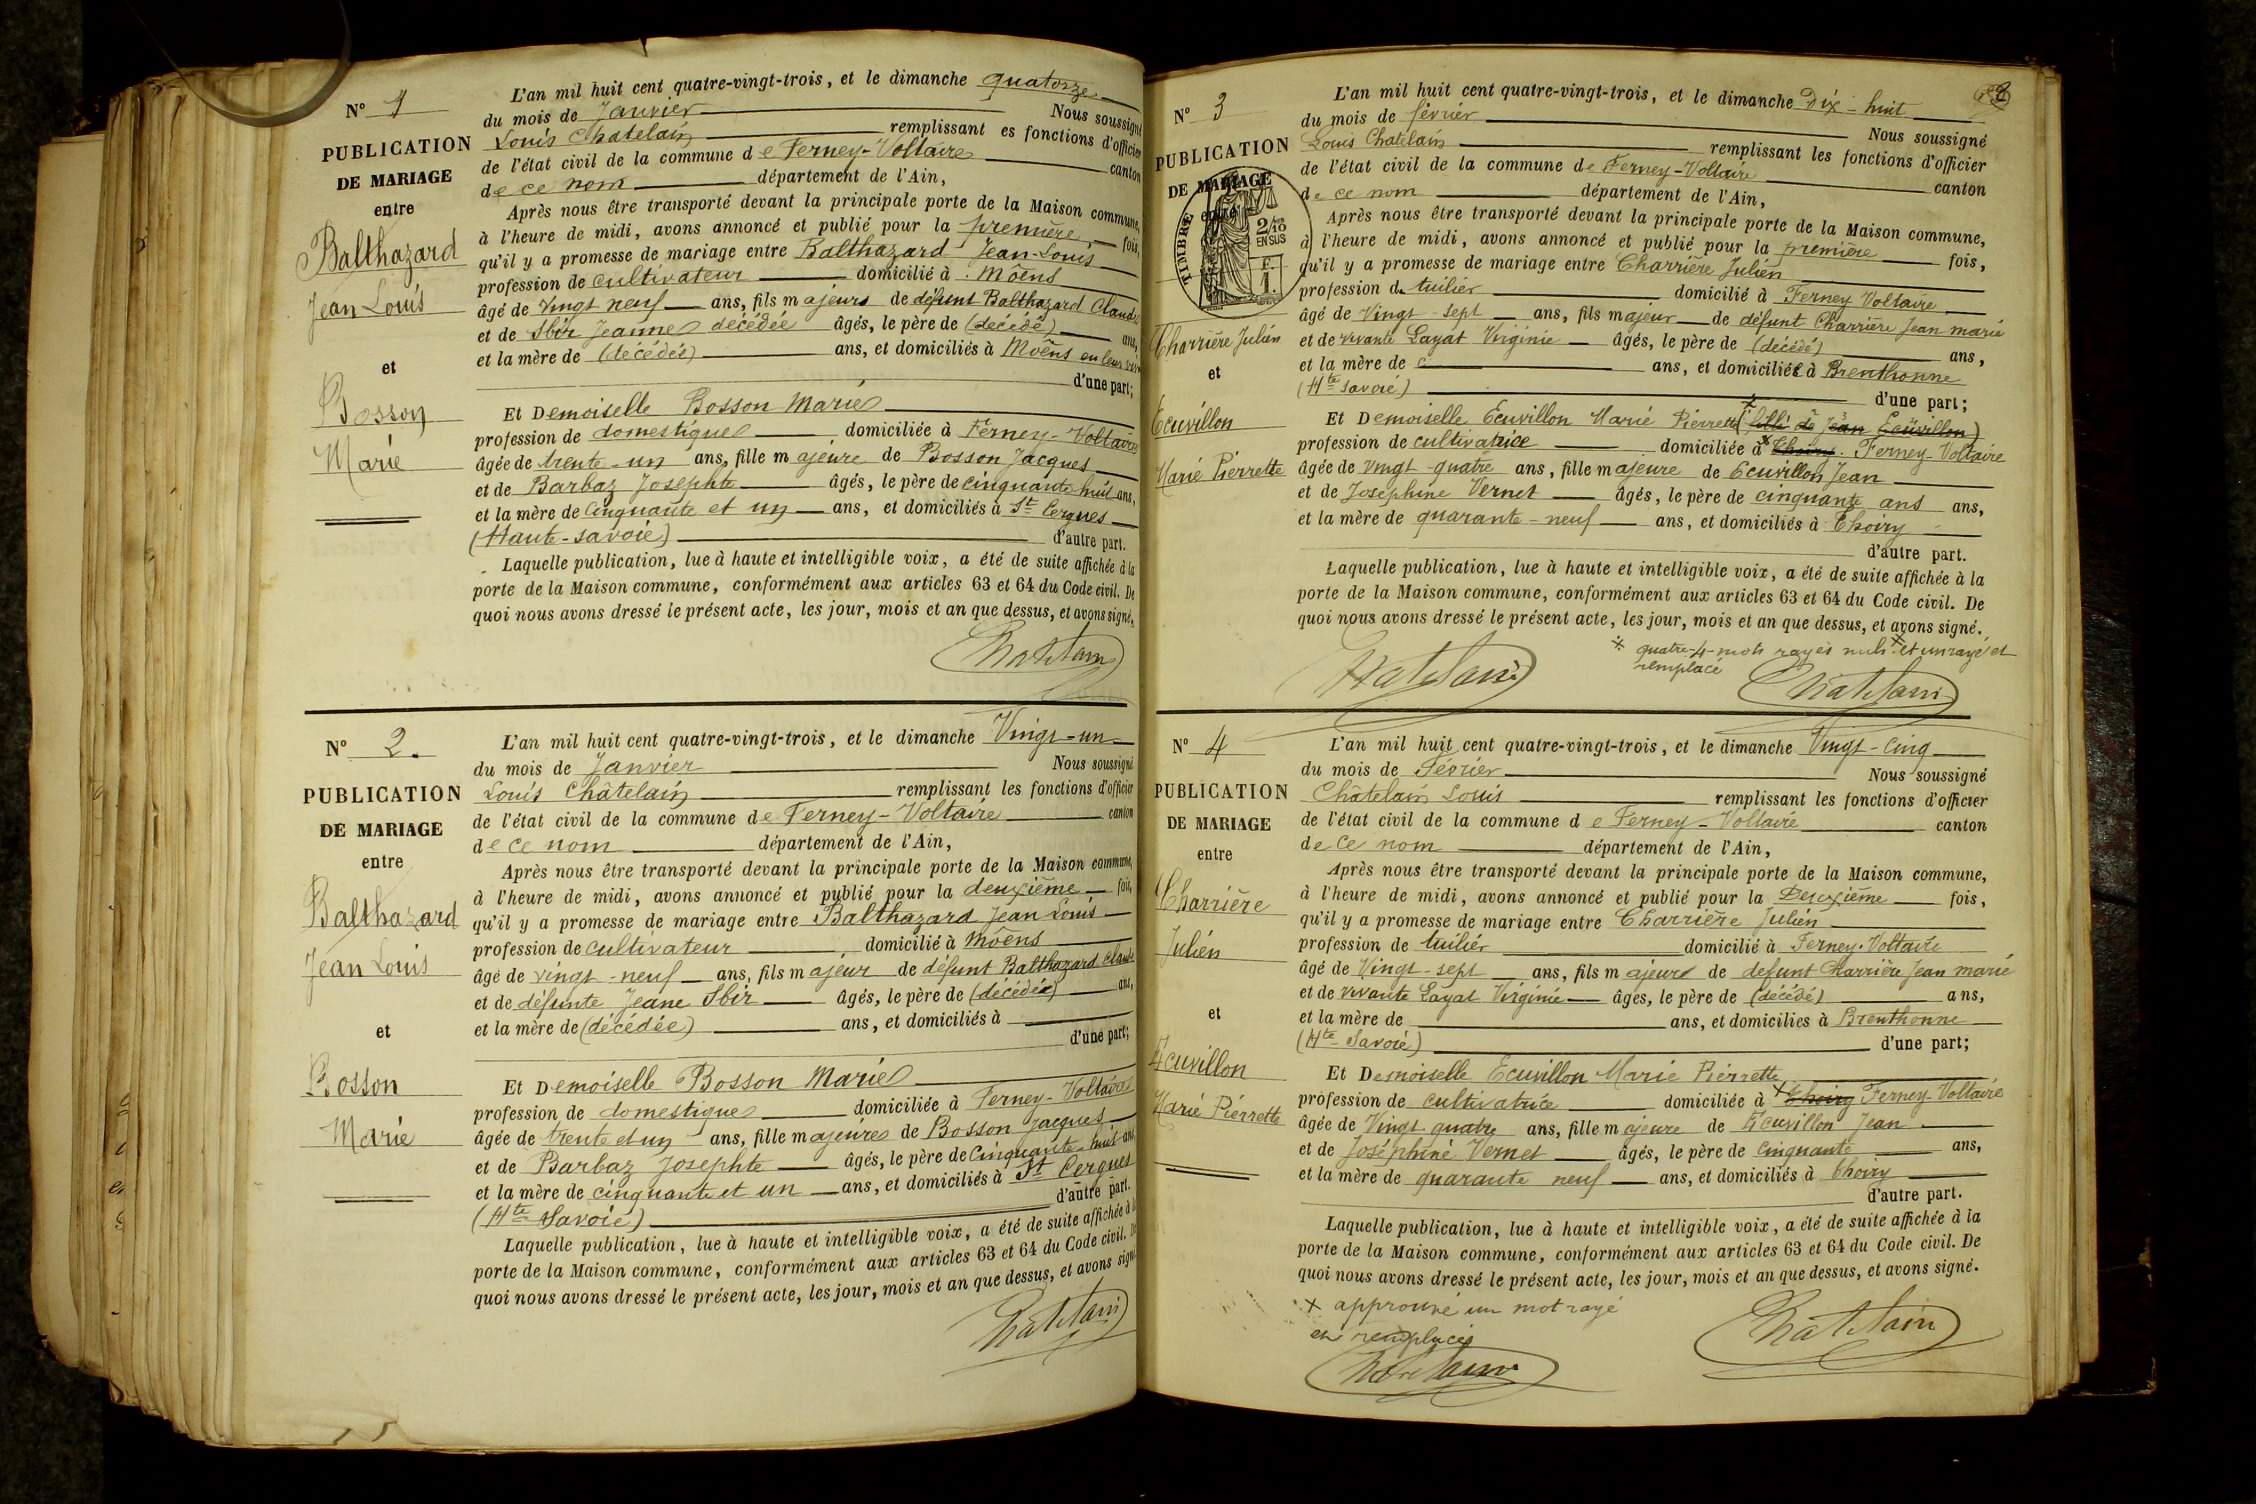 N° 1
PUBLICATION
DE MARIAGE
entre
Balthazard
Jean Louis
et
Bosson
Marie
L'an mil huit cent quatre-vingt-trois, et le dimanche quatorze
du mois de Janvier Nous soussigné
Louis Chatelain remplissant es fonctions d'officier
de l'état civil de la commune de Ferney-Voltaire canton
de ce nom département de l'Ain,
Après nous être transporté devant la principale porte de la Maison commune,
à l'heure de midi, avons annoncé et publié pour la première fois,
qu'il y a promesse de mariage entre Balthazard Jean-Louis
profession de cultivateur domicilié à Môens
âgé de vingt neuf ans, fils majeur de défunt Balthazard Claude
et de Sbir Jeanne décédée âgés, le père de (décédé) ans,
et la mère de (décédés) ans, et domiciliés à Moëns en leur
d'une part;
Et Demoiselle Bosson Marie
profession de domestique domiciliée à Ferney-Voltaire
âgée de trente-un ans, fille majeure de Bosson Jacques
et de Barbaz Josephte âgés, le père de cinquante-huit ans,
et la mère de cinquante et un ans, et domiciliés à St Cergues
(Haute-savoie) d'autre part.
Laquelle publication, lue à haute et intelligible voix, a été de suite affichée à la
porte de la Maison commune, conformément aux articles 63 et 64 du Code civil. De
quoi nous avons dressé le présent acte, les jour, mois et an que dessus, et avons signé.
Chatelain
N° 2.
PUBLICATION
DE MARIAGE
entre
Balthazard
Jean Louis
et
Bosson
Marie
L'an mil huit cent quatre-vingt-trois, et le dimanche Vingt-un
du mois de Janvier Nous soussigné
Louis Châtelain remplissant les fonctions d'officier
de l'état civil de la commune de Ferney-Voltaire canton
de ce nom département de l'Ain,
Après nous être transporté devant la principale porte de la Maison commune,
à l'heure de midi, avons annoncé et publié pour la deuxième fois,
qu'il y a promesse de mariage entre Balthazard Jean Louis
profession de cultivateur domicilié à Môens
âgé de vingt-neuf ans, fils majeur de défunt Balthazard Claude
et de défunte Jeane Sbir âgés, le père de (décédée) ans,
et la mère de (décédée) ans, et domiciliés à
d'une part;
Et Demoiselle Bosson Marie
profession de domestique domiciliée à Ferney-Voltaire
âgée de trente et un ans, fille majeure de Bosson Jacques
et de Barbaz Josephte âgés, le père de cinquante-huit ans
et la mère de cinquante et un ans, et domiciliés à St Cergues
(Hte Savoie) d'autre part.
Laquelle publication, lue à haute et intelligible voix, a été de suite affichée à la
porte de la Maison commune, conformément aux articles 63 et 64 du Code civil. De
quoi nous avons dressé le présent acte, les jour, mois et an que dessus, et avons signé.
Châtelain
N° 3
PUBLICATION
DE MARIAGE
entre
TIMBRE
2/10
EN SUS
F.
1.
Charrière Julien
et
Ecuvillon
Marie Pierrette
L'an mil huit cent quatre-vingt-trois, et le dimanche Dix-huit
du mois de février Nous soussigné
Louis Chatelain remplissant les fonctions d'officier
de l'état civil de la commune de Ferney-Voltaire canton
de ce nom département de l'Ain,
Après nous être transporté devant la principale porte de la Maison commune,
à l'heure de midi, avons annoncé et publié pour la première fois,
qu'il y a promesse de mariage entre Charrière Julien
profession de tuilier domicilié à Ferney Voltaire
âgé de Vingt-sept ans, fils majeur de défunt Charrière Jean marie
et de vivante Layat Virginie âgés, le père de (décédé) ans,
et la mère de ans, et domiciliés à Brenthonne
(Hte Savoie) d'une part;
Et Demoiselle Ecuvillon Marie Pierrette (fille de Jean Ecuvillon)
profession de cultivatrice domiciliée à Choiry. Ferney-Voltaire
âgée de vingt-quatre ans, fille majeure de Ecuvillon Jean
et de Joséphine Vernet âgés, le père de cinquante ans ans,
et la mère de quarante-neuf ans, et domiciliés à Thoiry
d'autre part.
Laquelle publication, lue à haute et intelligible voix, a été de suite affichée à la
porte de la Maison commune, conformément aux articles 63 et 64 du Code civil. De
quoi nous avons dressé le présent acte, les jour, mois et an que dessus, et avons signé.
quatre-4-mots rayés nuls et un rayé et
remplacé
Chatelain
Châtelain
N° 4
PUBLICATION
DE MARIAGE
entre
Charrière
Julien
et
Ecuvillon
Marie Pierrette
L'an mil huit cent quatre-vingt-trois, et le dimanche Vingt-cinq
du mois de Février Nous soussigné
Châtelain Louis remplissant les fonctions d'officier
de l'état civil de la commune de Ferney-Voltaire canton
de ce nom département de l'Ain,
Après nous être transporté devant la principale porte de la Maison commune,
à l'heure de midi, avons annoncé et publié pour la Deuxième fois,
qu'il y a promesse de mariage entre Charrière Julien
profession de tuilier domicilié à Ferney-Voltaire
âgé de Vingt-sept ans, fils majeur de defunt Charrière Jean marie
et de vivante Layat Virginie âgés, le père de (décédé) ans,
et la mère de ans, et domiciliés à Brenthonne
(Hte Savoie) d'une part;
Et Demoiselle Ecuvillon Marie Pierrette
profession de cultivatrice domiciliée à Thoiry Ferney-Voltaire
âgée de Vingt-quatre ans, fille majeure de Ecuvillon Jean
et de Joséphine Vernet âgés, le père de cinquante ans,
et la mère de quarante neuf ans, et domiciliés à Thoiry
d'autre part.
Laquelle publication, lue à haute et intelligible voix, a été de suite affichée à la
porte de la Maison commune, conformément aux articles 63 et 64 du Code civil. De
quoi nous avons dressé le présent acte, les jour, mois et an que dessus, et avons signé.
x approuvé un mot rayé
et remplacés
Châtelain
Châtelain